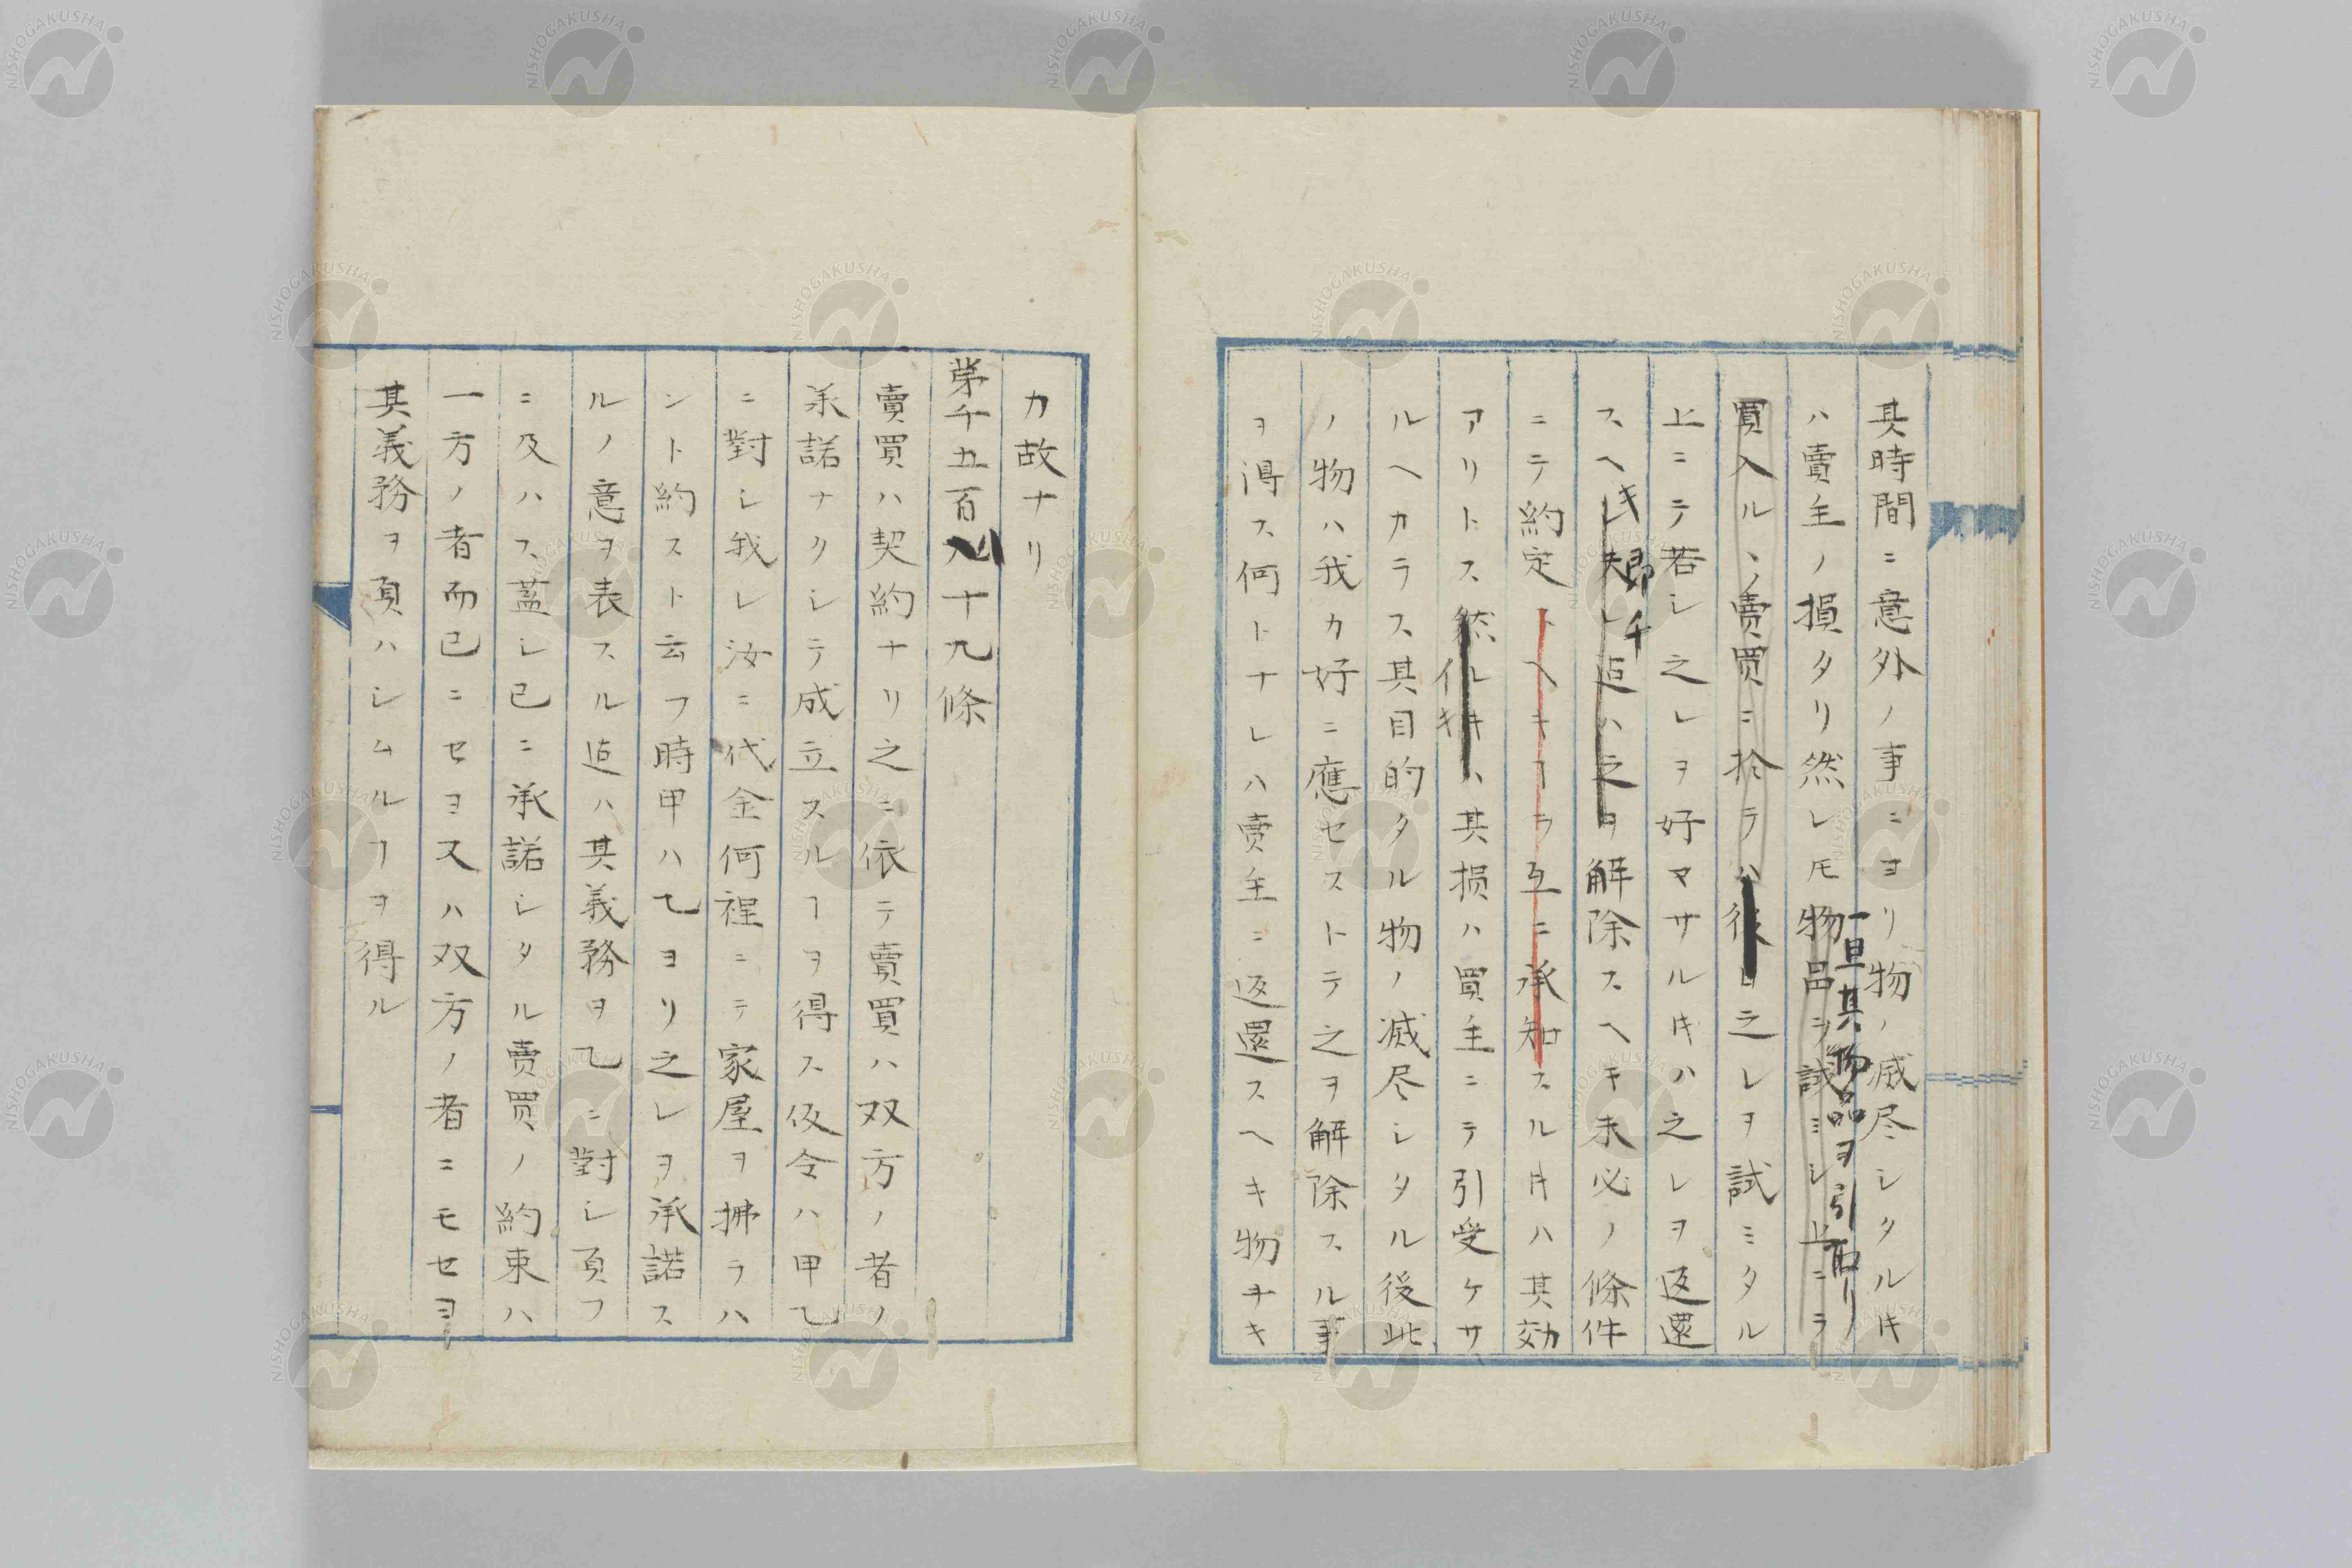 其時間ニ意外ノ事ニヨリ物ノ滅尽シタルキ
ハ賣主ノ損タリ然レ𪜈物品ヲ試ミシ上ニラ
一旦其物品ヲ引取リ
買入ルヽノ賣買ニ於ラハ後レ之レヲ試ミタル
上ニテ若シ之レヲ好マサルキハ之レヲ返還
スヘシ夫レ迠ハ之ヲ解除スヘキ未必ノ條件
キ
即チ
ニテ約定トヘキヿヲ互ニ承知スルキハ其効
アリトス然ルキハ其損ハ買主ニテ引受ケサ
ルヘカラス其目的タル物ノ滅尽シタル後此
ノ物ハ我カ好ニ應セストテ之ヲ解除スル事
ヲ得ス何トナレハ賣主ニ返還スヘキ物ナキ
カ故ナリ
第千五百八十九條
賣買ハ契約ナリ之ニ依テ賣買ハ双方ノ者ノ
承諾ナクシテ成立スルヿヲ得ス仮令ハ甲乙
ニ對シ我レ汝ニ代金何程ニテ家屋ヲ拂ラハ
ント約ストス云フ時甲ハ乙ヨリ之レヲ承諾ス
ルノ意ヲ表スル迠ハ其義務ヲ乙ニ對シ負フ
ニ及ハス蓋シ已ニ承諾シタル賣買ノ約束ハ
一方ノ者而已ニセヨ又ハ双方ノ者ニモセヨ
其義務ヲ負ハシムルヿヲ得ル
NISHOGAKUSHA